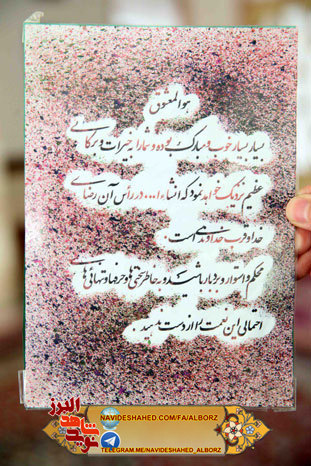 هو المعشوق
بسیار بسیار خوب و مبارک بوده و شما را به خیرات و برکات
عظیم نزدیک خواهد نمود که انشاء ا... در رأس آن رضای
خدا و قرب خداوندی است
محکم و استوار و بردبار باشید و به خاطر سختی ها و حرفها و تنهائی های
احتمالی این نعمت را از دست ندهید.
نوید شاهد البرز
NAVIDESHAHED.COM/FA/ALBORZ
TELEGRAM.ME/NAVIDESHAHED_ALBORZ